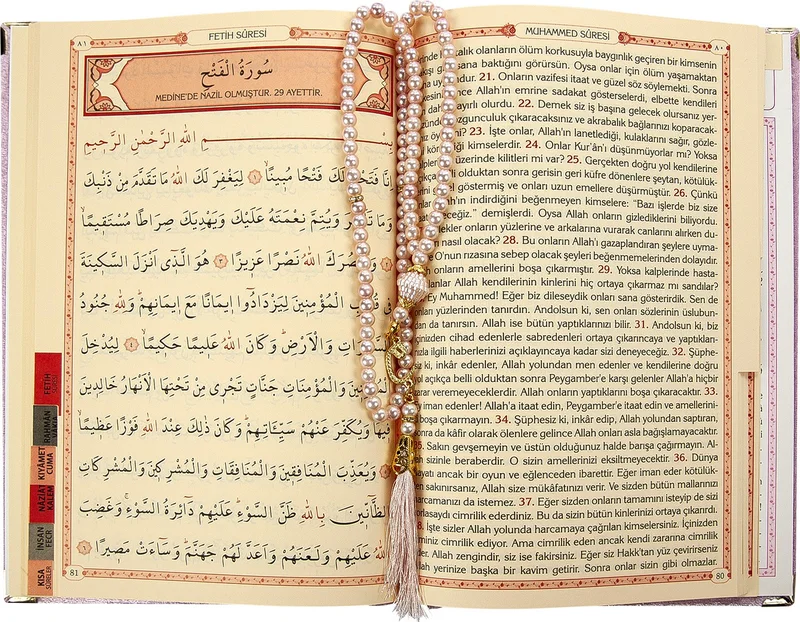 MUHAMMED SÛRESİ
٨٠
kalık olanların ölüm korkusuyla baygınlık geçiren bir kimsenin
sana baktığını görürsün. Oysa onlar için ölüm yaşamaktan
21. Onların vazifesi itaat ve güzel söz söylemekti. Sonra
Allah'ın emrine sadakat gösterselerdi, elbette kendileri
hayırlı olurdu. 22. Demek siz iş başına gelecek olursanız yer-
bozgunculuk çıkaracaksınız ve akrabalık bağlarınızı koparacak-
öyle mi? 23. İşte onlar, Allah'ın lanetlediği, kulaklarını sağır, gözle-
kimselerdir. 24. Onlar Kur'ân'ı düşünmüyorlar mı? Yoksa
üzerinde kilitleri mi var? 25. Gerçekten doğru yol kendilerine
olduktan sonra gerisin geri küfre dönenlere şeytan, kötülük-
göstermiş ve onları uzun emellere düşürmüştür. 26. Çünkü
Allah'ın indirdiğini beğenmeyen kimselere: "Bazı işlerde bize size
demişlerdi. Oysa Allah onların gizlediklerini biliyordu.
onların yüzlerine ve arkalarına vurarak canlarını alırken du-
nasıl olacak? 28. Bu onların Allah'ı gazaplandıran şeylere uyma-
O'nun rızasına sebep olacak şeyleri beğenmemelerinden dolayıdır.
onların amellerini boşa çıkarmıştır. 29. Yoksa kalplerinde hasta-
Allah kendilerinin kinlerini hiç ortaya çıkarmaz mı sandılar?
Ey Muhammed! Eğer biz dileseydik onları sana gösterirdik. Sen de
onları yüzlerinden tanırdın. Andolsun ki, sen onları sözlerinin üslubun-
dan da tanırsın. Allah ise bütün yaptıklarınızı bilir. 31. Andolsun ki, biz
içinizden cihad edenlerle sabredenleri ortaya çıkarıncaya ve yaptıkları-
nızla ilgili haberlerinizi açıklayıncaya kadar sizi deneyeceğiz. 32. Şüphe-
siz ki, inkâr edenler, Allah yolundan men edenler ve kendilerine doğru
yol açıkça belli olduktan sonra Peygamber'e karşı gelenler Allah'a hiçbir
zarar veremeyeceklerdir. Allah onların yaptıklarını boşa çıkaracaktır. 33.
Ey iman edenler! Allah'a itaat edin, Peygamber'e itaat edin ve amellerini-
zi boşa çıkarmayın. 34. Şüphesiz ki, inkâr edip, Allah yolundan saptıran,
sonra da kâfir olarak ölenlere gelince Allah onları asla bağışlamayacaktır.
Sakın gevşemeyin ve üstün olduğunuz halde barışa çağırmayın. Al-
sizinle beraberdir. O sizin amellerinizi eksiltmeyecektir. 36. Dünya
hayatı ancak bir oyun ve eğlenceden ibarettir. Eğer iman eder kötülük-
sakınırsanız, Allah size mükâfatınızı verir. Ve sizden bütün mallarınızı
harcamanızı da istemez. 37. Eğer sizden onların tamamını isteyip de sizi
zorlasaydı cimrilik ederdiniz. Bu da sizin bütün kinlerinizi ortaya çıkarırdı.
İşte sizler Allah yolunda harcamaya çağrılan kimselersiniz. İçinizden
kiminiz cimrilik ediyor. Ama cimrilik eden ancak kendi zararına cimrilik
eder. Allah zengindir, siz ise fakirsiniz. Eğer siz Hakk'tan yüz çevirirseniz
Allah yerinize başka bir kavim getirir. Sonra onlar sizin gibi olmazlar.
80
٨١
FETİH SÛRESİ
سُورَةُ الْفَتْحِ
MEDİNE'DE NAZİL OLMUŞTUR. 29 AYETTİR.
بِسْمِ اللهِ الرَّحْمٰنِ الرَّحِيمِ
اِنَّا فَتَحْنَا لَكَ فَتْحًا مُبِينًا ﴿١﴾ لِيَغْفِرَ لَكَ اللهُ مَا تَقَدَّمَ مِنْ ذَنْبِكَ
وَمَا تَاَخَّرَ وَيُتِمَّ نِعْمَتَهُ عَلَيْكَ وَيَهْدِيَكَ صِرَاطًا مُسْتَقِيمًا
﴿٢﴾ وَيَنْصُرَكَ اللهُ نَصْرًا عَزِيزًا ﴿٣﴾ هُوَ الَّذِى اَنْزَلَ السَّكِينَةَ
فِى قُلُوبِ الْمُؤْمِنِينَ لِيَزْدَادُوا اِيمَانًا مَعَ اِيمَانِهِمْ وَلِلّٰهِ جُنُودُ
السَّمٰوَاتِ وَالْاَرْضِ وَكَانَ اللهُ عَلِيمًا حَكِيمًا ﴿٤﴾ لِيُدْخِلَ
الْمُؤْمِنِينَ وَالْمُؤْمِنَاتِ جَنَّاتٍ تَجْرِى مِنْ تَحْتِهَا الْاَنْهَارُ خَالِدِينَ
فِيهَا وَيُكَفِّرَ عَنْهُمْ سَيِّـَٔاتِهِمْ وَكَانَ ذٰلِكَ عِنْدَ اللهِ فَوْزًا عَظِيمًا
﴿٥﴾ وَيُعَذِّبَ الْمُنَافِقِينَ وَالْمُنَافِقَاتِ وَالْمُشْرِكِينَ وَالْمُشْرِكَاتِ
الظَّٓانِّينَ بِاللهِ ظَنَّ السَّوْءِ عَلَيْهِمْ دَٓائِرَةُ السَّوْءِ وَغَضِبَ
اللهُ عَلَيْهِمْ وَلَعَنَهُمْ وَاَعَدَّ لَهُمْ جَهَنَّمَ وَسَٓاءَتْ مَصِيرًا ﴿٦﴾
81
FETİH
RAHMÂN
KIYÂMET
CUMA
NAZİÂT
KALEM
İNSAN
FECR
KISA
SÛRELER